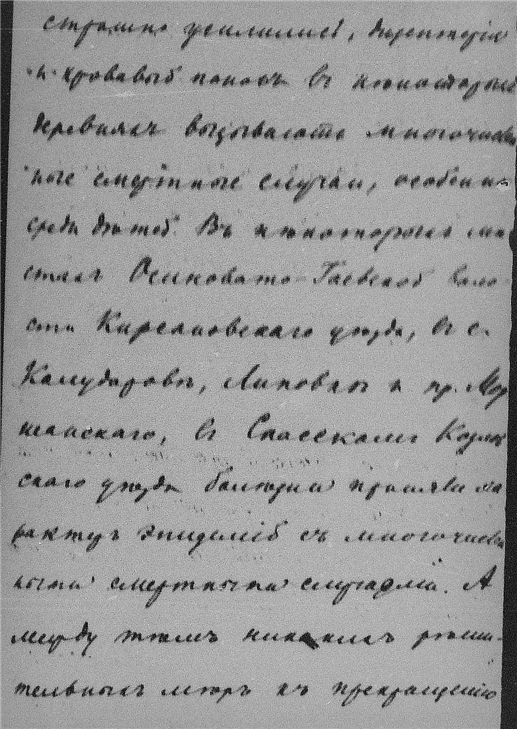 страшно усилились, дизентерія
и кровавый поносъ въ нѣкоторыхъ
деревняхъ вызываютъ многочислен
ные смертные случаи, особенно
среди дѣтей. Въ нѣкоторыхъ мѣ
стахъ Осиновато-Гаевской воло
сти Кирсановскаго уѣзда, въ с.
Липовкѣ и пр. Мор
шанскаго, въ Спасскомъ Козлов
скаго уѣзда болѣзни приняли ха
рактеръ эпидемій съ многочислен
ными смертными случаями. А
между тѣмъ никакихъ рѣши-
тельныхъ мѣръ къ прекращенію